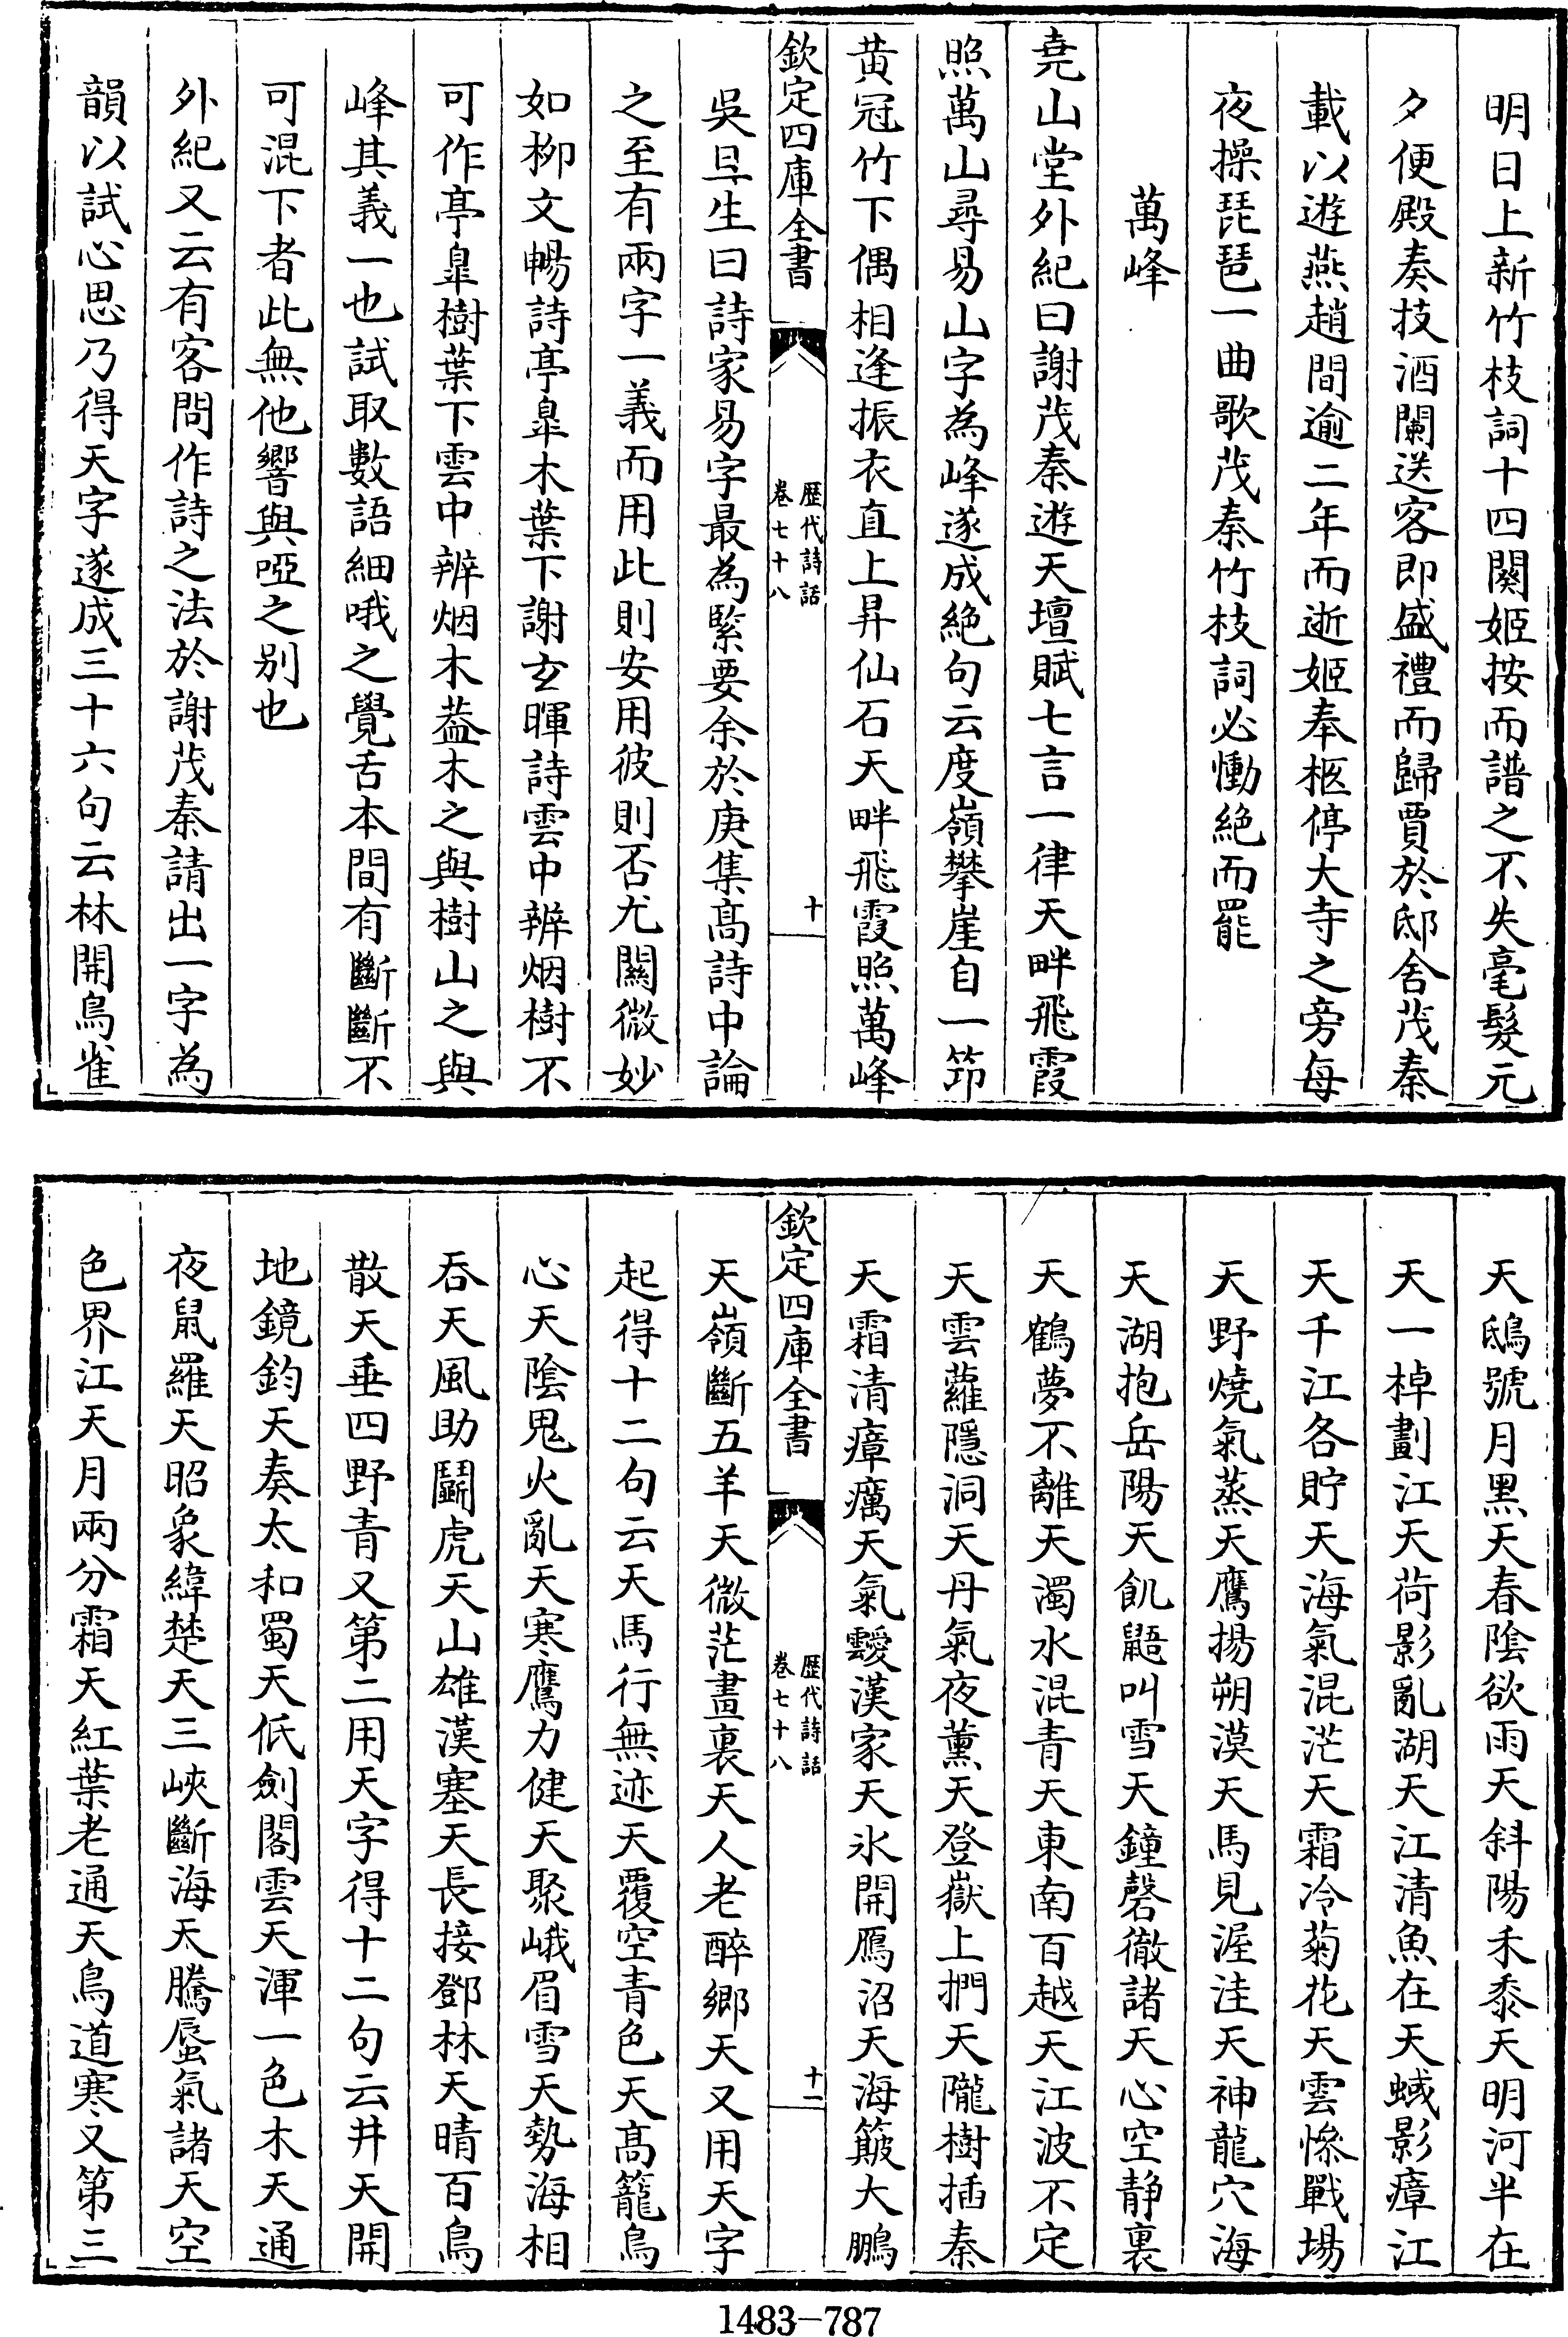 明日上新竹枝詞十四闋姬按而譜之不失毫髮元
夕便殿奏技酒闌送客即盛禮而歸賈於邸舍茂秦
載以遊燕趙間逾二年而逝姬奉柩停大寺之旁每
夜操琵琶一曲歌茂秦竹枝詞必慟絶而罷
萬峰
堯山堂外紀曰謝茂秦遊天壇賦七言一律天畔飛霞
照萬山尋易山字為峰遂成絶句云度嶺攀崖自一笻
黄冠竹下偶相逢振衣直上昇仙石天畔飛霞照萬峰
欽定四庫全書
歴代詩話
卷七十八
十
吳旦生曰詩家易字最為緊要余於庚集髙詩中論
之至有兩字一義而用此則安用彼則否尤關微妙
如栁文暢詩亭臯木葉下謝玄暉詩雲中辨烟樹不
可作亭臯樹葉下雲中辨烟木葢木之與樹山之與
峰其義一也試取數語細哦之覺舌本間有斷斷不
可混下者此無他響與啞之别也
外紀又云有客問作詩之法於謝茂秦請出一字為
韻以試心思乃得天字遂成三十六句云林開鳥雀
天鴟號月黒天春隂欲雨天斜陽禾黍天明河半在
天一棹劃江天荷影亂湖天江清魚在天蜮影瘴江
天千江各貯天海氣混茫天霜冷菊花天雲慘戰塲
天野燒氣蒸天鷹揚朔漠天馬見渥洼天神龍穴海
天湖抱岳陽天飢鼯叫雪天鐘磬徹諸天心空静裏
天鶴夢不離天濁水混青天東南百越天江波不定
天雲蘿隱洞天丹氣夜薰天登嶽上捫天隴樹插秦
天霜清瘴癘天氣靉漢家天氷開鴈沼天海簸大鵬
欽定四庫全書
歴代詩話
卷七十八
十一
天嶺斷五羊天微茫畫裏天人老醉鄉天又用天字
起得十二句云天馬行無迹天覆空青色天髙籠鳥
心天隂鬼火亂天寒鷹力健天聚峨眉雪天勢海相
吞天風助鬭虎天山雄漢塞天長接鄧林天晴百鳥
散天垂四野青又第二用天字得十二句云井天開
地鏡鈞天奏太和蜀天低劍閣雲天渾一色木天通
夜鼠羅天昭象緯楚天三峽斷海天騰蜃氣諸天空
色界江天月兩分霜天紅葉老通天鳥道寒又第三
1483-787